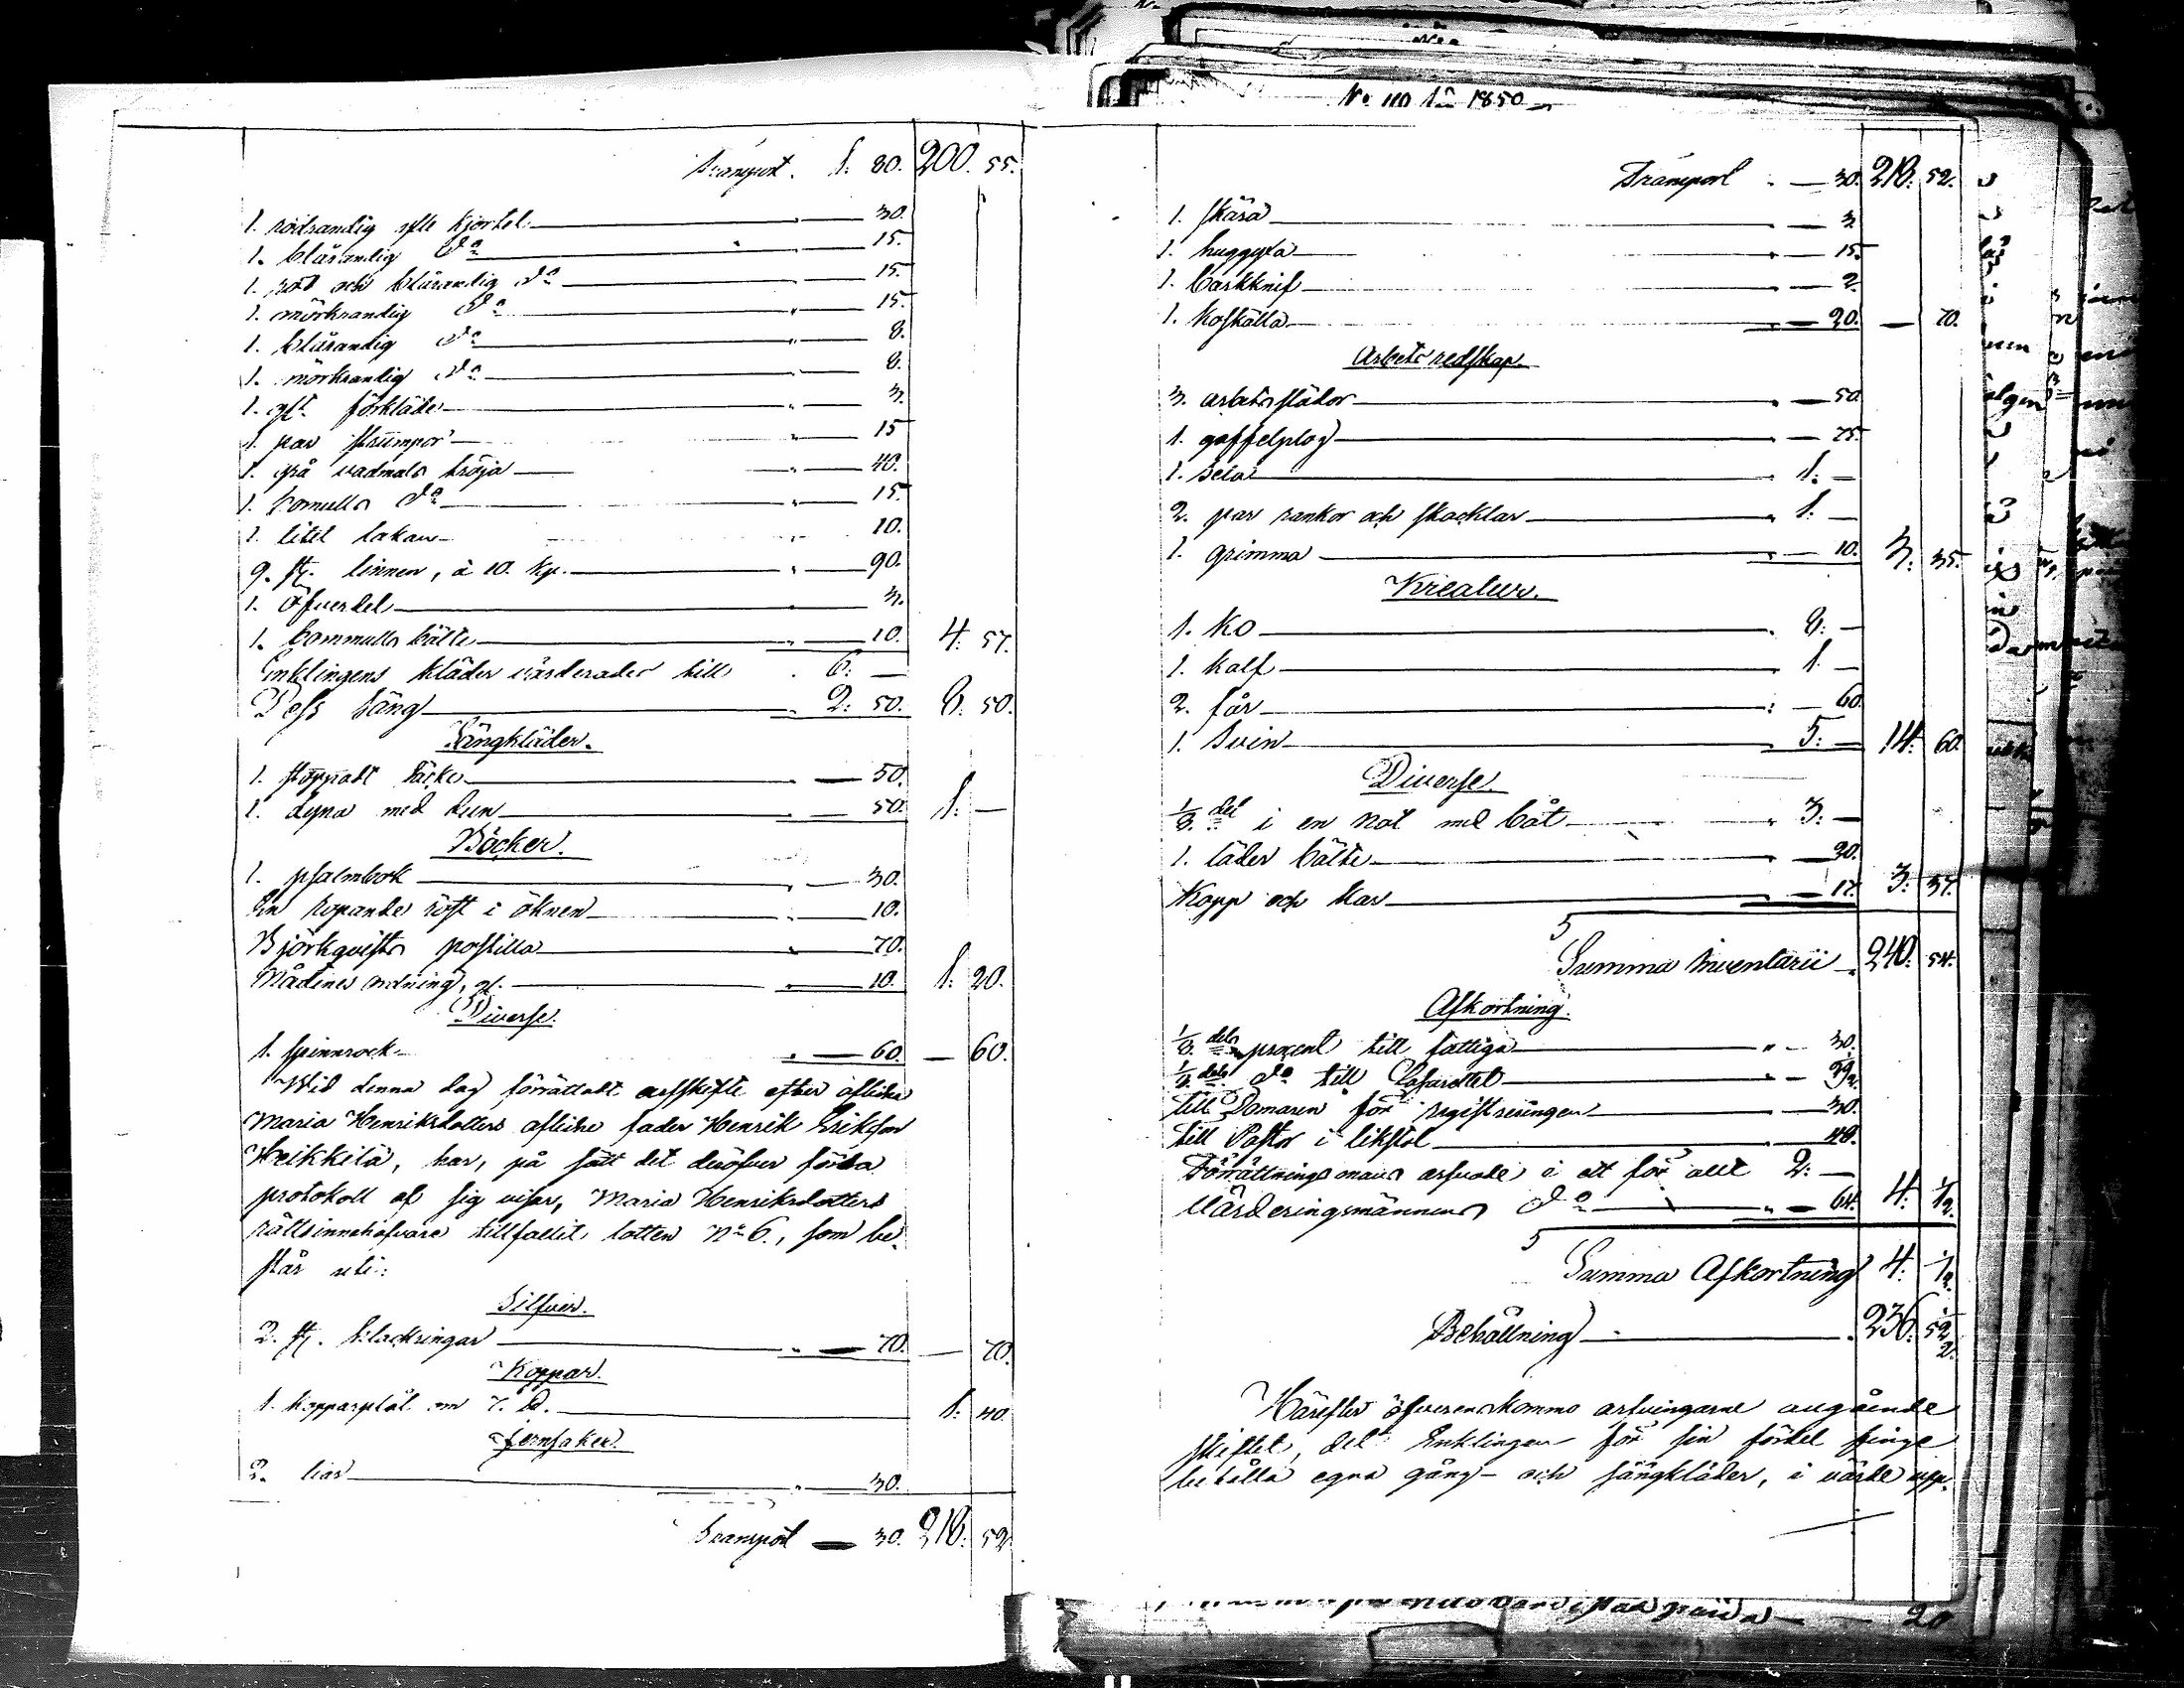 Transport. 1: 80. 200. 55.
1. rödrandig ylle kjortel. — 30.
1. blårandig do — 15.
1. röd och blårandig do — 15.
1. mörkrandig do — 15.
1. blårandig do — 8.
1. mörkrandig do — 8.
1. förkläde — 3.
1. par strumpor — 15
1. grå vadmals tröja — 40.
1. bomulls do — 15.
1. litet lakan — 10.
9. st. linnen, à 10. kp. — 90.
1. Öfverdel — 3.
1. bommulls bälte — 10. 4. 57.
Enklingens kläder värderades till 6: —
Dess säng — 2: 50. 8. 50.
Sängkläder.
1. stoppadt täcke — 50.
1. dyna med dun — 50. 1: —
Böcker.
1. psalmbok — 30.
En ropande röst i öknen — 10.
Björkqvists postilla — 70.
Nådenes ordning, — 10. 1: 20.
Diverse.
1. spinnrock — 60. — 60.
Wid denna dag förrättadt arfskifte efter aflidne
Maria Henriksdotters aflidne fader Henrik Eriksson
Heikkilä, har, på sätt det deröfver förda
protokoll af sig visar, Maria Henriksdotters
rättsinnehafvare tillfallit lotten No 6., som be-
står uti:
Silfver.
2. st. klackringar — 70. — 70.
Koppar.
1. kopparplåt om 7. 1. 40.
Jernsaker.
2. liar — 30.
Transport — 30. 218. 52.
No 110 1850
Transport — 30. 218. 52.
1. skära — 3
1. huggyxa — 15.
1. barkknif — 2
1. koskälla — 20. — 70.
Arbets redskap.
3. arbetsslädor — 50
1. gaffelplog — 75.
1. sela — 1: —
2. par rankor och skacklar — 1: —
1. grimma — 10. 3. 35.
Kreatur.
1. ko — 8: —
1. kalf — 1 —
2. får — 60
1. svin — 5: — 14. 60.
Diverse.
1/8 del i en not med båt — 3: —
1. läder bälte — 20.
Kopp och kar — 17. 3: 37.
Summa Inventarii 240. 54.
Afkortning.
1/8 dels procent till fattiga — 30.
1/8 dels do till Lasarettet —
till Domaren för registreringen — 30.
till Pastor i likstol — 48.
Förrättningsmans arfvode i ett för allt 2: —
Värderingsmännens do — 64. 4. 1/2.
Summa Afkortning 4. 1/2
Behållning — 236.
Härefter öfverenskommo arfvingarne angående
skiftet, det Enklingen för sin fördel finge
behålla egna gång- och sängkläder, i värde upp-
20